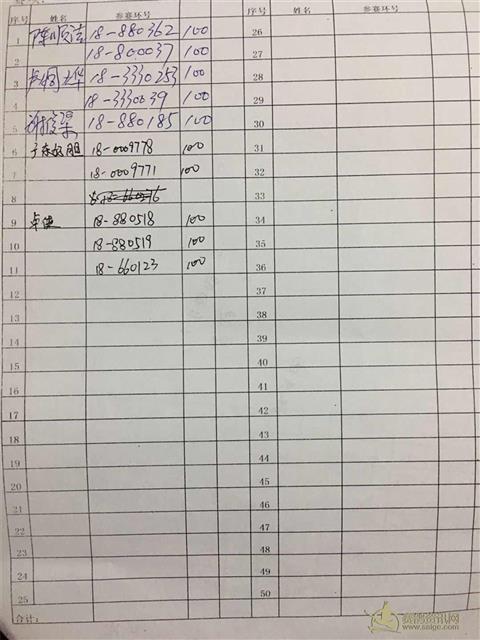 序号 姓名 参赛环号 序号 姓名 参赛环号
1 18-880362 100 26
2 18-800037 100 27
3 18-3330253 100 28
4 18-3330039 100 29
5 18-880185 100 30
6 18-0009778 100 31
7 18-0009771 100 32
8 33
9 18-880518 100 34
10 18-880519 100 35
11 18-660123 100 36
12 37
13 38
14 39
15 40
16 41
17 42
18 43
19 44
20 45
21 46
22 47
23 48
24 49
25 50
合计:
赛鸽资讯网
www.saige.com